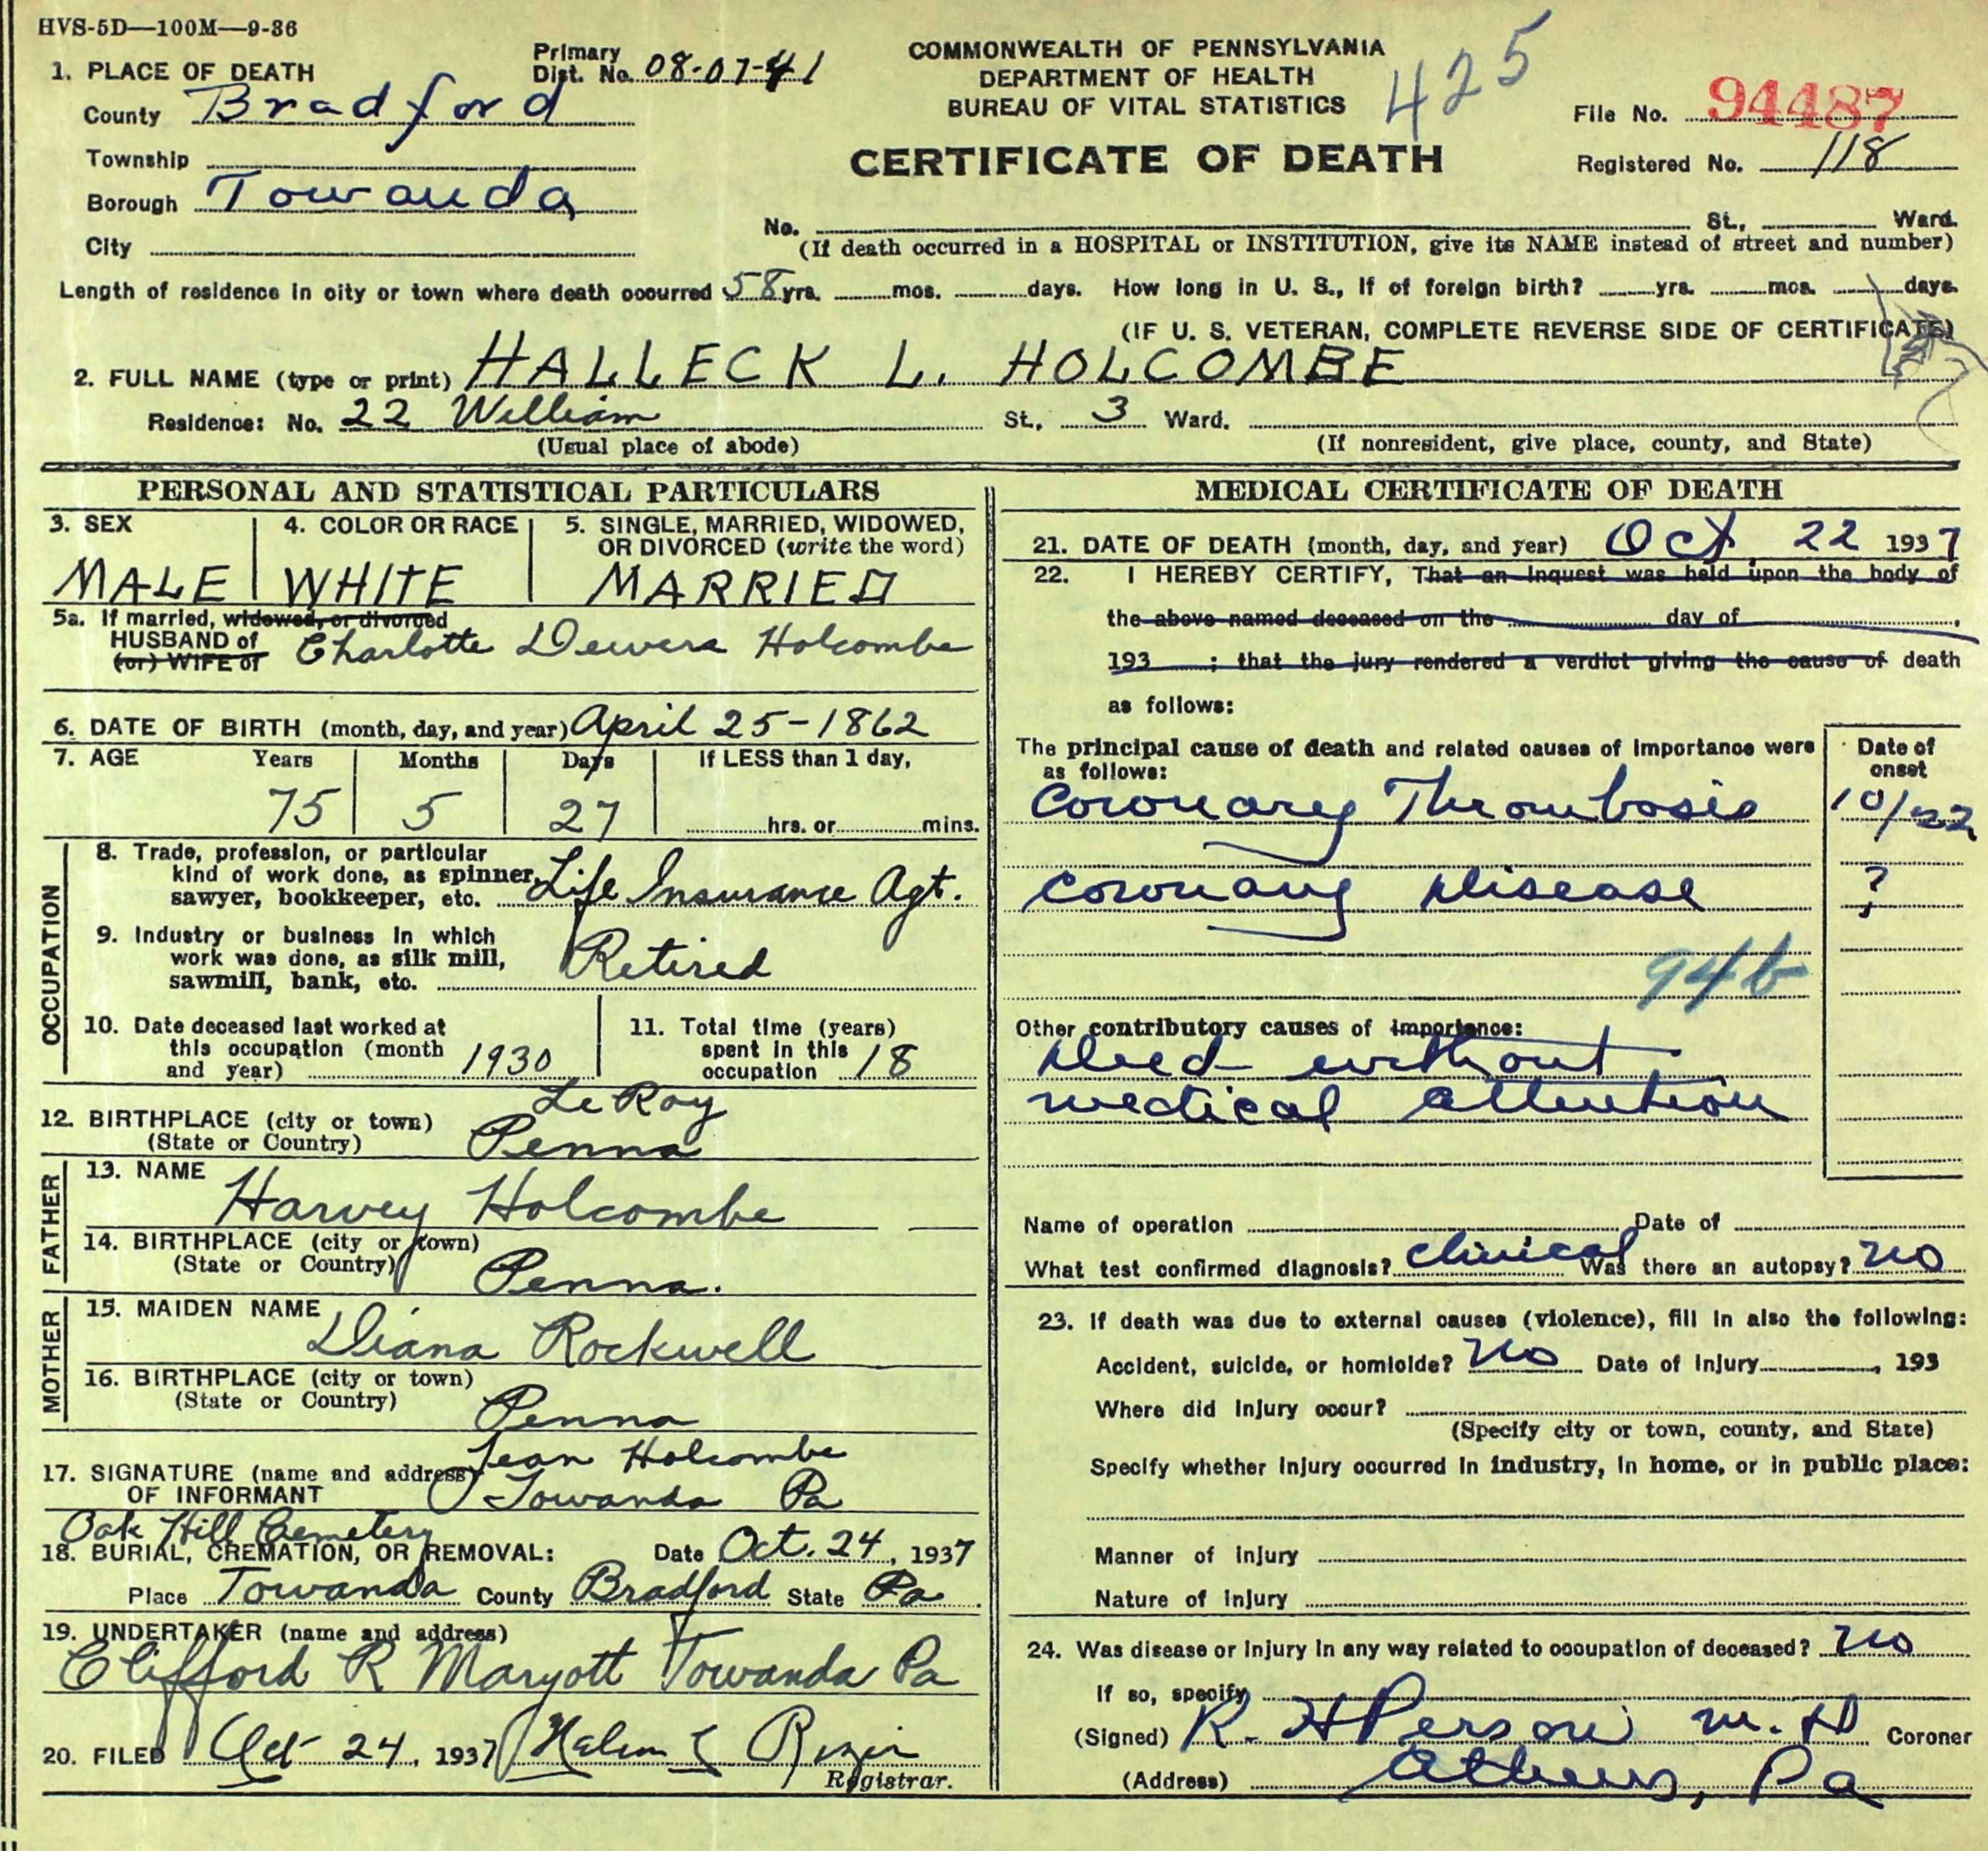 HVS-5D—100M—9-36
1. PLACE OF DEATH
Primary Dist. No. 08-07-41
County Bradford
Township
Borough Towanda
City
COMMONWEALTH OF PENNSYLVANIA
DEPARTMENT OF HEALTH
BUREAU OF VITAL STATISTICS
425
CERTIFICATE OF DEATH
File No. 94487
Registered No. 118
No. St., Ward.
(If death occurred in a HOSPITAL or INSTITUTION, give its NAME instead of street and number)
Length of residence in city or town where death occurred 58 yrs. mos. days. How long in U. S., if of foreign birth? yrs. mos. days.
(IF U. S. VETERAN, COMPLETE REVERSE SIDE OF CERTIFICATE)
2. FULL NAME (type or print) HALLECK L. HOLCOMBE
Residence: No. 22 William St., 3 Ward.
(Usual place of abode) (If nonresident, give place, county, and State)
PERSONAL AND STATISTICAL PARTICULARS
3. SEX
MALE
4. COLOR OR RACE
WHITE
5. SINGLE, MARRIED, WIDOWED, OR DIVORCED (write the word)
MARRIED
5a. If married, widowed, or divorced
HUSBAND of
(or) WIFE of
Charlotte Holcombe
6. DATE OF BIRTH (month, day, and year) April 25-1862
7. AGE Years Months Days If LESS than 1 day,
75 5 27 hrs. or mins.
OCCUPATION
8. Trade, profession, or particular
kind of work done, as spinner,
sawyer, bookkeeper, etc. Life Insurance Agt.
9. Industry or business in which
work was done, as silk mill,
sawmill, bank, etc. Retired
10. Date deceased last worked at
this occupation (month
and year) 1930
11. Total time (years)
spent in this
occupation 18
12. BIRTHPLACE (city or town) LeRoy
(State or Country) Penna
FATHER
13. NAME
Harvey Holcombe
14. BIRTHPLACE (city or town)
(State or Country) Penna.
MOTHER
15. MAIDEN NAME
Diana Rockwell
16. BIRTHPLACE (city or town)
(State or Country) Penna
17. SIGNATURE (name and address) Jean Holcombe
OF INFORMANT Towanda Pa
Oak Hill Cemetery
18. BURIAL, CREMATION, OR REMOVAL: Date Oct. 24, 1937
Place Towanda County Bradford State Pa
19. UNDERTAKER (name and address)
Clifford R Maryott Towanda Pa
20. FILED Oct 24, 1937 Helen
Registrar.
MEDICAL CERTIFICATE OF DEATH
21. DATE OF DEATH (month, day, and year) Oct 22 1937
22. I HEREBY CERTIFY, That an inquest was held upon the body of
the above named deceased on the day of ,
193 ; that the jury rendered a verdict giving the cause of death
as follows:
The principal cause of death and related causes of importance were
as follows:
Date of onset
Coronary Thrombosis 10/22
Coronary Disease ?
94b
Other contributory causes of importance:
Died without
medical attention
Name of operation Date of
What test confirmed diagnosis? clinical Was there an autopsy? no
23. If death was due to external causes (violence), fill in also the following:
Accident, suicide, or homicide? no Date of injury , 193
Where did injury occur?
(Specify city or town, county, and State)
Specify whether injury occurred in industry, in home, or in public place:
Manner of injury
Nature of injury
24. Was disease or injury in any way related to occupation of deceased? no
If so, specify
(Signed) R. H Person M. D Coroner
(Address) Athens, Pa